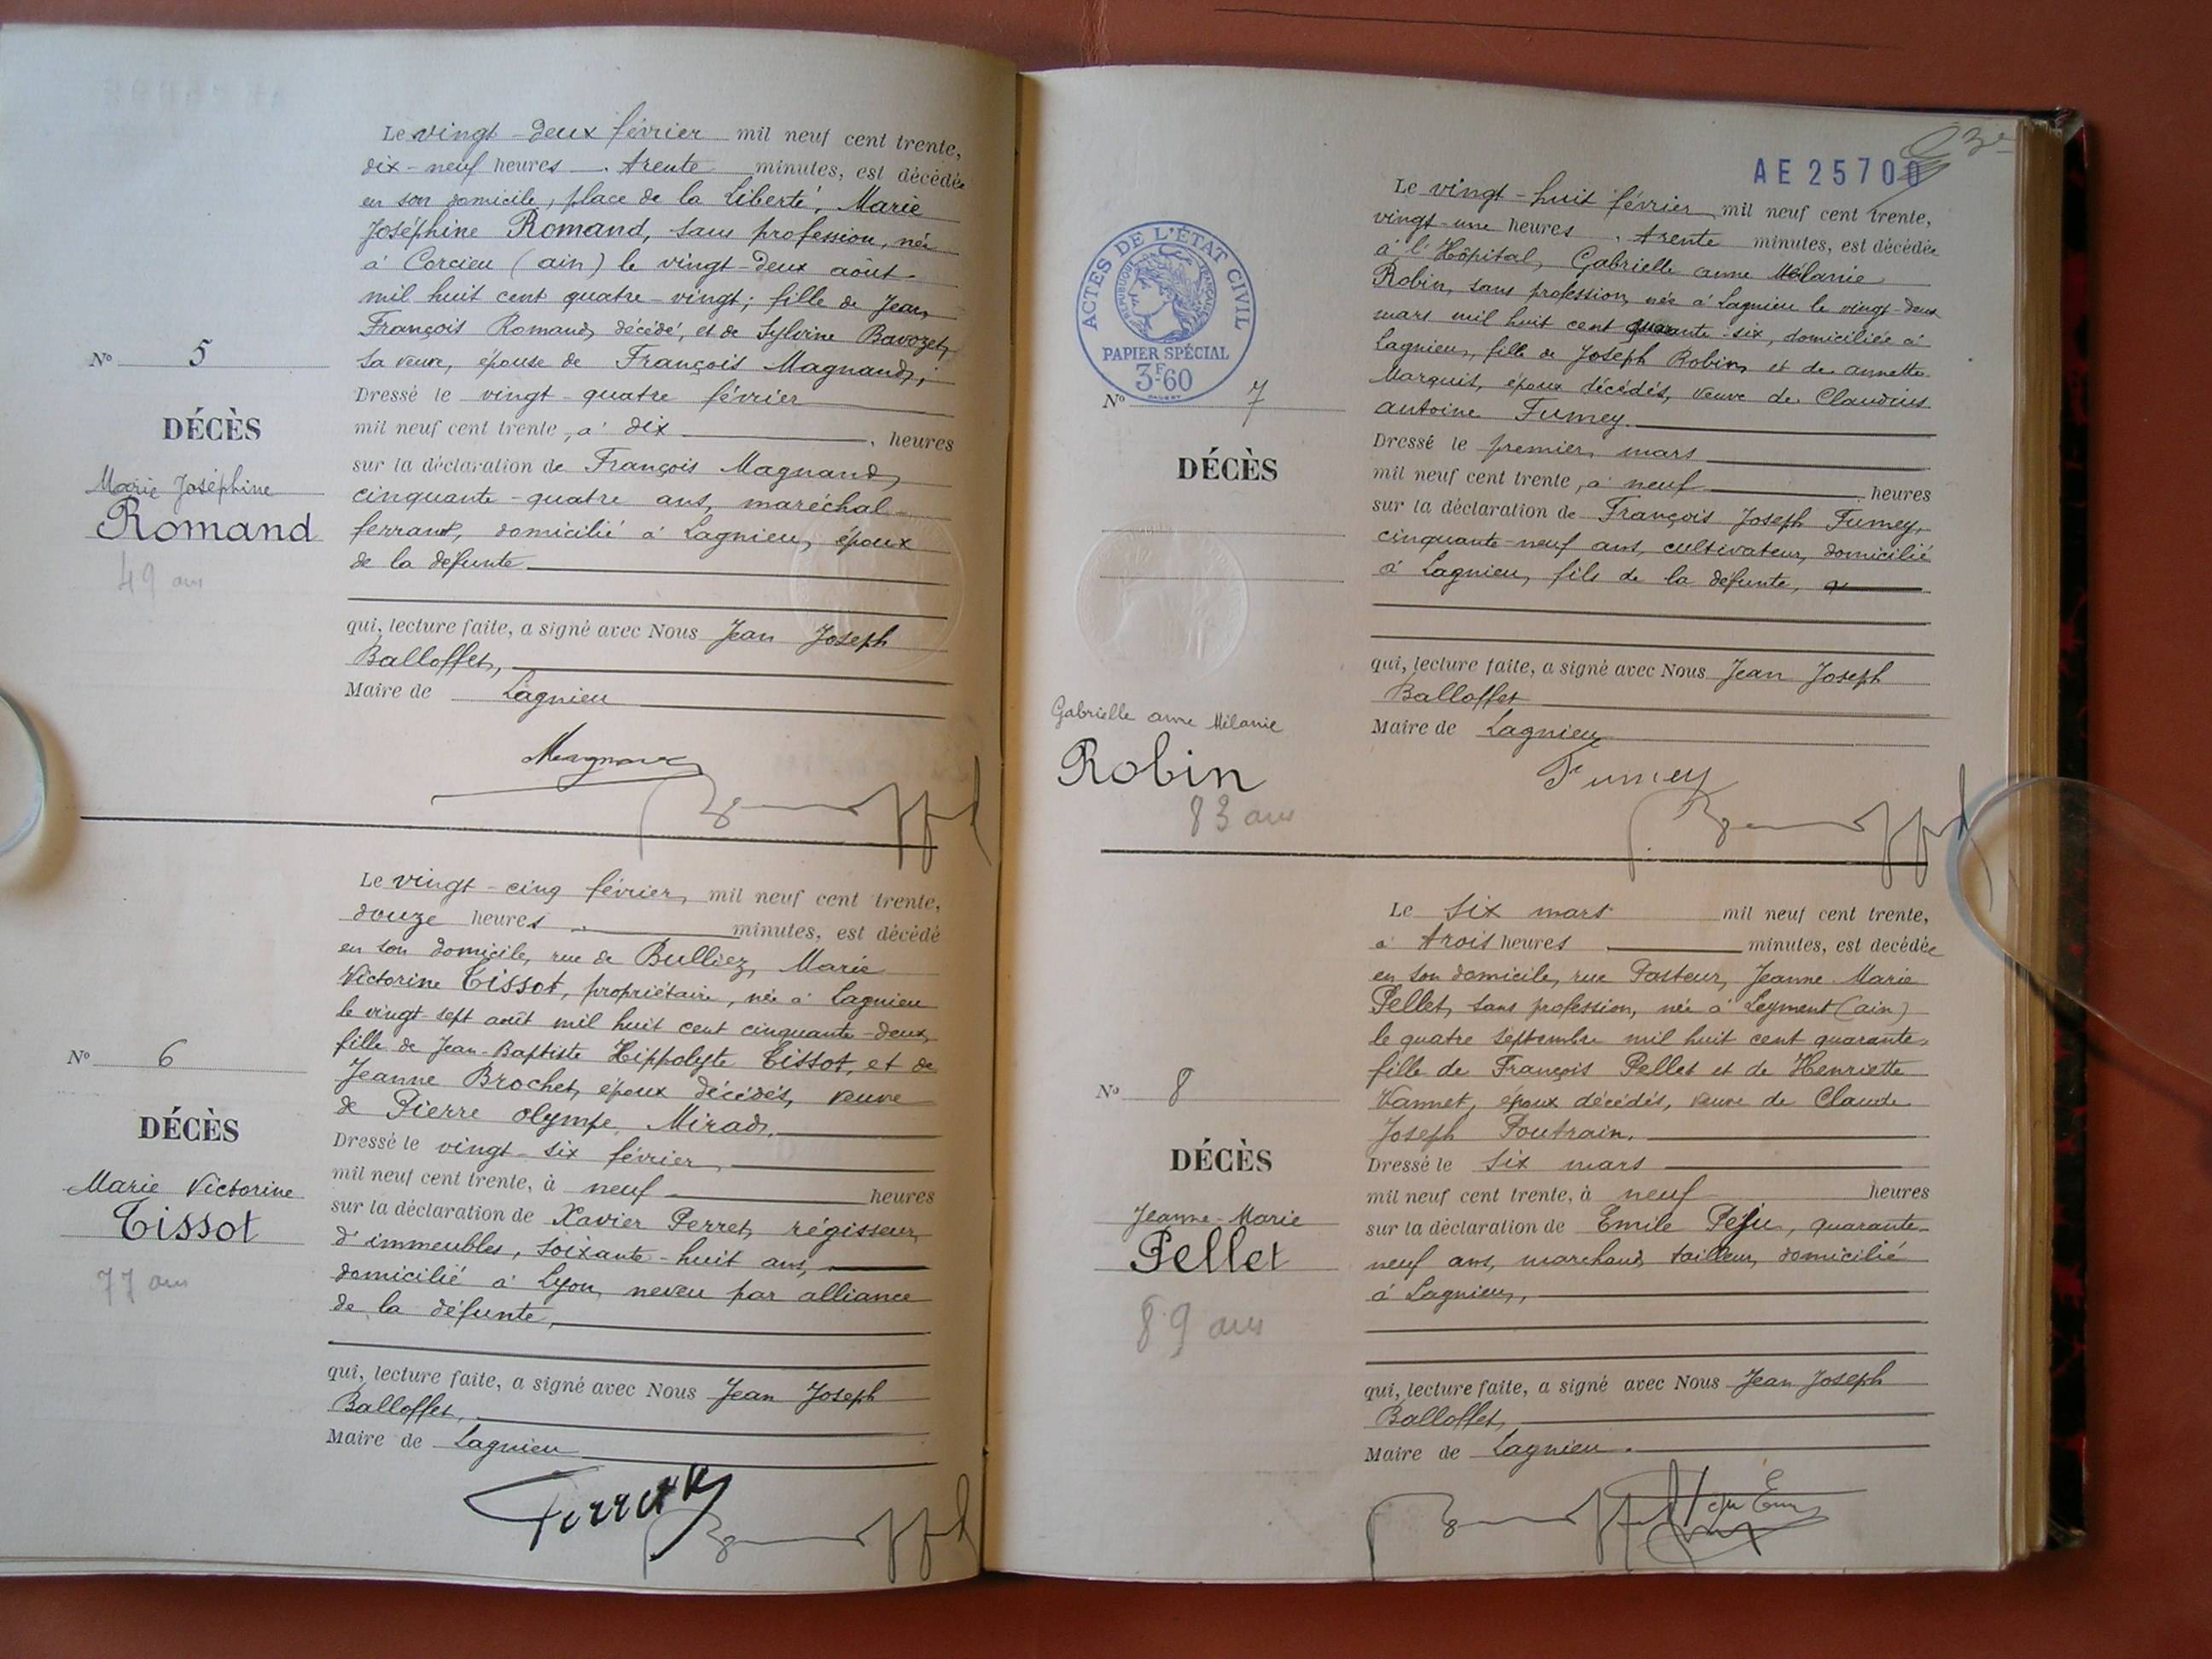 Le vingt-deux février mil neuf cent trente,
dix-neuf heures trente minutes, est décédée
en son domicile, place de la Liberté, Marie
Joséphine Romand, sans profession, née
à Corcieu (ain) le vingt-deux août
mil huit cent quatre-vingt; fille de Jean
François Romand, décédé, et de Sylvine Bavozet,
sa veuve, épouse de François Magnand;
Nº 5
Dressé le vingt-quatre février
DÉCÈS
mil neuf cent trente, à dix heures
sur la déclaration de François Magnand,
Marie Joséphine
cinquante-quatre ans, maréchal-
Romand
ferrant, domicilié à Lagnieu, époux
49 ans
de la défunte
qui, lecture faite, a signé avec Nous Jean Joseph
Balloffet,
Maire de Lagnieu
Magnand
Le vingt-cinq février, mil neuf cent trente,
douze heures minutes, est décédé
en son domicile, rue de Bulliez, Marie
Victorine Tissot, propriétaire, née à Lagnieu
le vingt-sept août mil huit cent cinquante-deux,
fille de Jean-Baptiste Hippolyte Tissot, et de
Nº 6
Jeanne Brochet, époux décédés, veuve
de Pierre Olympe Mirad.
DÉCÈS
Dressé le vingt-six février,
mil neuf cent trente, à neuf heures
Marie Victorine
sur la déclaration de Xavier Perret, régisseur
Tissot
d'immeubles, soixante-huit ans,
77 ans
domicilié à Lyon, neveu par alliance
de la défunte,
qui, lecture faite, a signé avec Nous Jean Joseph
Balloffet,
Maire de Lagnieu
Perret
AE 25700
Le vingt-huit février mil neuf cent trente,
vingt-une heures trente minutes, est décédée
à l'Hôpital, Gabrielle anne Mélanie
Robin, sans profession, née à Lagnieu le vingt-deux
mars mil huit cent quarante-six, domiciliée à
Lagnieu, fille de Joseph Robin et de annette
Marquis, époux décédés, veuve de Claudius
antoine Fumey.
ACTES DE L'ÉTAT CIVIL
RÉPUBLIQUE FRANÇAISE
PAPIER SPÉCIAL
3F.60
Nº 7
Dressé le premier mars
DÉCÈS
mil neuf cent trente, à neuf heures
sur la déclaration de François Joseph Fumey,
cinquante-neuf ans, cultivateur, domicilié
à Lagnieu, fils de la défunte,
qui, lecture faite, a signé avec Nous Jean Joseph
Balloffet
Maire de Lagnieu
Gabrielle anne Mélanie
Robin
83 ans
Fumey
Le six mars mil neuf cent trente,
à trois heures minutes, est décédée
en son domicile, rue Pasteur, Jeanne-Marie
Pellet, sans profession, née à Leyment (ain)
le quatre septembre mil huit cent quarante,
fille de François Pellet et de Henriette
Nº 8
Vannet, époux décédés, veuve de Claude
Joseph Poutrain.
DÉCÈS
Dressé le six mars
mil neuf cent trente, à neuf heures
Jeanne-Marie
sur la déclaration de Emile Péju, quarante-
Pellet
neuf ans, marchand tailleur, domicilié
89 ans
à Lagnieu,
qui, lecture faite, a signé avec Nous Jean Joseph
Balloffet,
Maire de Lagnieu.